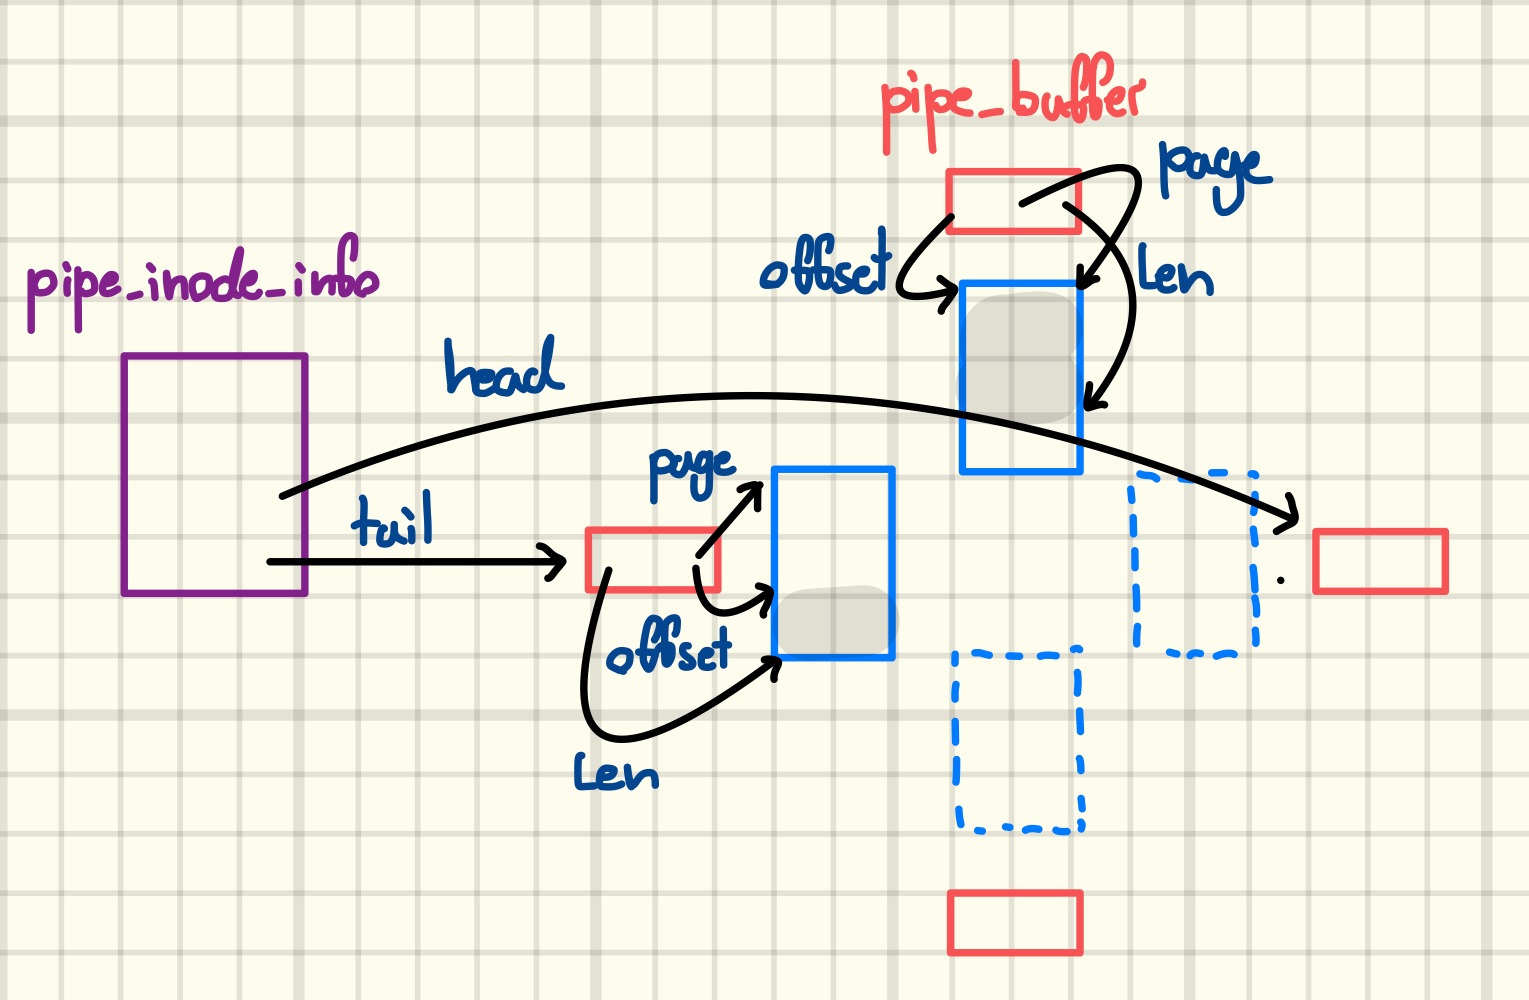 pipe_buffer
page
offset
len
pipe_inode_info
head
page
tail
offset
len